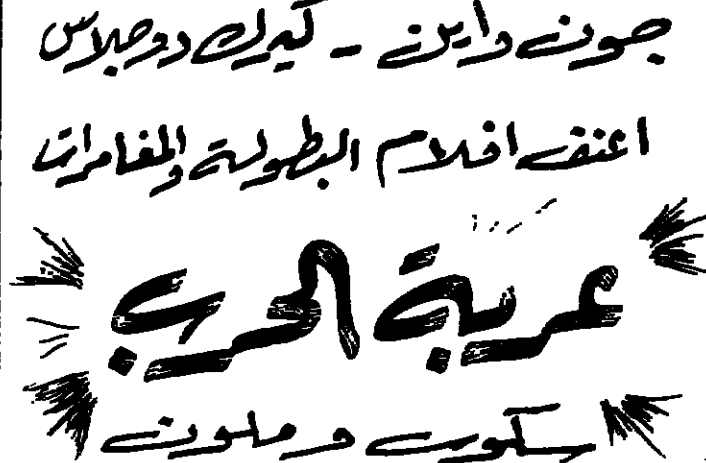 جون واين - كيرك دوجلاس
اعنف افلام البطولة والمغامرات
عربة الحرب
سكوب وملون